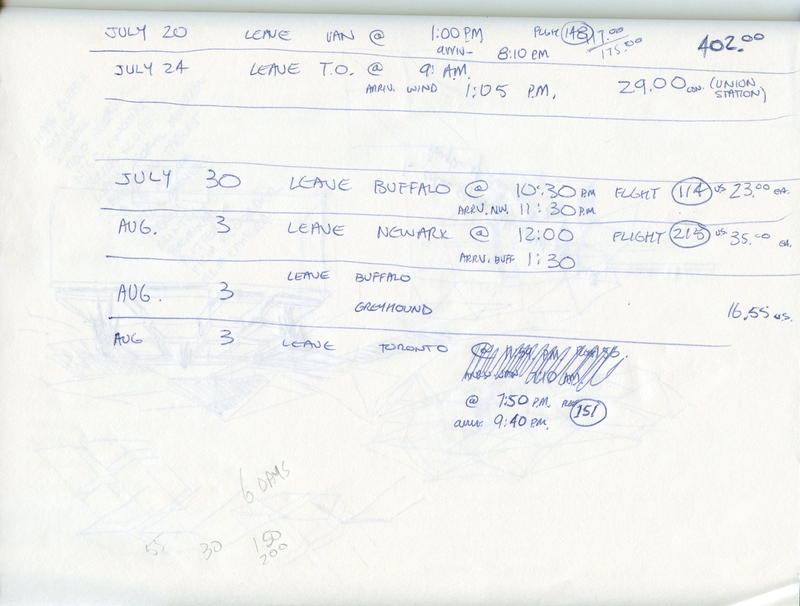 JULY 20 LEAVE VAN @ 1:00 PM FLIGHT 148 17.00 402.00
ARRIV- 8:10 PM 175.00
JULY 24 LEAVE T.O. @ 9: A.M.
ARRIV. WIND 1:05 P.M. 29.00 CAN. (UNION STATION)
JULY 30 LEAVE BUFFALO @ 10:30 PM FLIGHT 114 US 23.00 EA.
ARRV. NW. 11:30 P.M
AUG. 3 LEAVE NEWARK @ 12:00 FLIGHT 215 US 35.00 EA.
ARRV. BUFF 1:30
AUG. 3 LEAVE BUFFALO
GREYHOUND 16.55 U.S.
AUG 3 LEAVE TORONTO
@ 7:50 P.M. 151
ARRIV. 9:40 PM.
6 DAYS
55 30 150
200